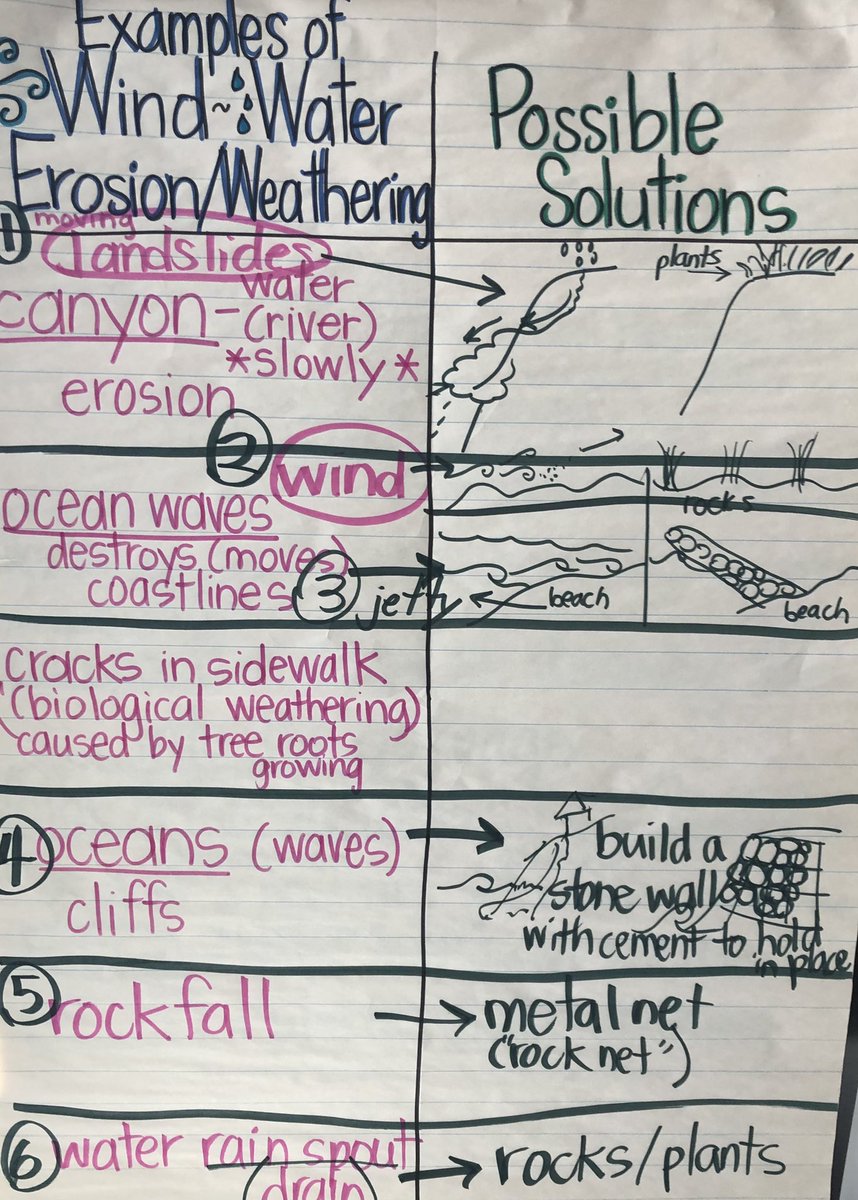 Examples of
Wind ~ Water
Erosion/Weathering
Possible
Solutions
1 moving
landslides
canyon - water
(river)
*slowly*
erosion
plants
2 wind
ocean waves
destroys (moves)
coastlines
3 jetty
beach
rocks
beach
cracks in sidewalk
(biological weathering)
caused by tree roots
growing
4 oceans (waves)
cliffs
build a
stone wall
with cement to hold
in place
5 rockfall
metal net
("rock net")
6 water rain spout
drain
rocks/plants